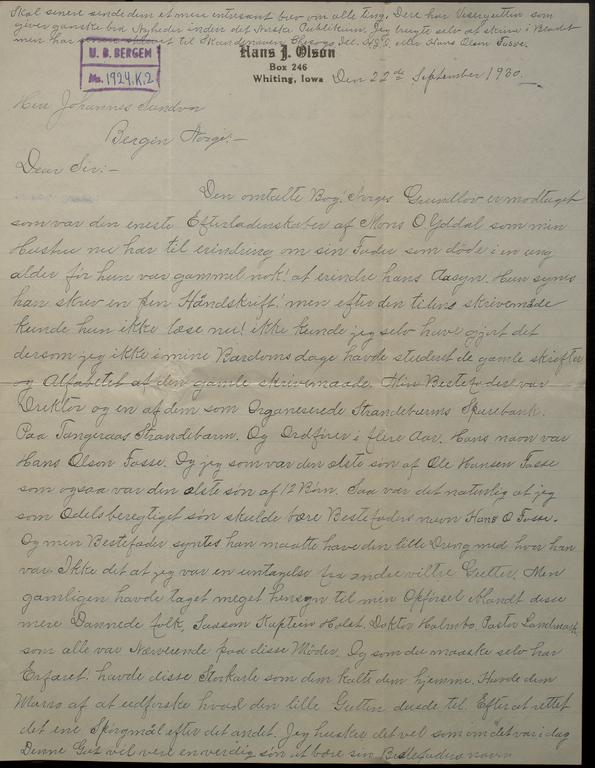 Skal senere sende dem et mere intresant brev om alle ting. Dere har Visergutten som
giver ganske bra Nyheder inden det Norske Publikum. Jeg brugte selv at skrive i Bladet
men har til Skandinaven Chicago Ill. H.J.O. eller Hans Olson Fosse.
U. B. BERGEN
Ms. 1924.K.2
Hans J. Olson
Box 246
Whiting, Iowa
Den 22de September 1930.
Herr Johannes Sundvor
Bergen Norge:-
Dear Sir:-
Den omtalte Bog! Norges Grundlov er modtaget
som var den eneste Efterladenskaber af Mons O Yddal som min
Hustru nu har til erindring om sin Fader som døde i en ung
alder før hun var gammel nok! at erindre hans Aasyn. Hun synes
han skrev en pen Håndskrift! men efter den tidens skrivemåde
kunde hun ikke læse nu! ikke kunde jeg selv have gjort det
dersom jeg ikke i mine Barndoms dage havde studeret de gamle skrifter
og Alfabetet af den gamle skrivemaade. Min Bestefader var
Direktør og en af dem som Organiserede Strandebarms Sparebank.
Paa Tangeraas Strandebarm. Og Ordfører i flere Aar. Hans navn var
Hans Olson Fosse. Og jeg som var den ælste søn af Ole Hansen Fosse
som ogsaa var den ælste søn af 12 Børn. Saa var det naturlig at jeg
som Odelsberegtiget søn skulde bære Bestefaders navn Hans O Fosse.
Og min Bestefader syntes han maatte have den lille Dreng med hvor han
var. Ikke det at jeg var en untagelse fra andre viltre Gutter. Men
gamlingen havde taget meget hensyn til min Opførsel blandt disse
mere Dannede folk, Saason Kaptein Holst. Doktor Holmbo, Pastor Landmark,
som alle var Nærværende paa disse Møder. Og som du maaske selv har
Erfaret. havde disse Storkarle som dem kalte dem hjemme. Havde dem
Morro af at udforske hvad den lille Gutten duede til. Efter at rettet
det ene Spørgmål efter det andet. Jeg husker det vel som om det var i dag
Denne Gut vil være en verdig søn at bære sin Bestefaders navn